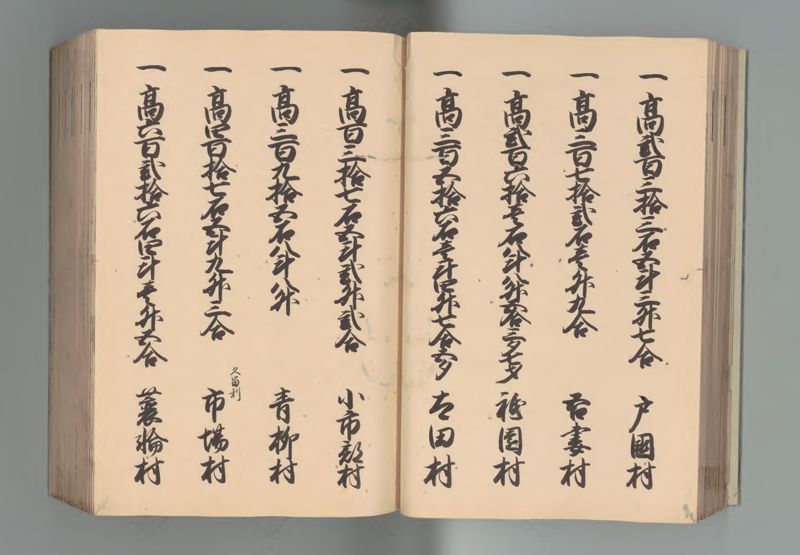 一 高弐百三拾三石五斗三升七合 戸國村
一 高三百七拾弐石壱升九合 吾妻村
一 高弐百六拾壱石八斗八升 祇園村
一 高三百五拾六石壱斗四升七合五夕 太田村
一 高百三拾七石五斗弐升弐合 小市部村
一 高三百九拾五石八斗八升 青柳村
久留利
一 高四百拾七石五斗九升三合 市場村
一 高六百弐拾六石四斗壱升五合 蓑輪村